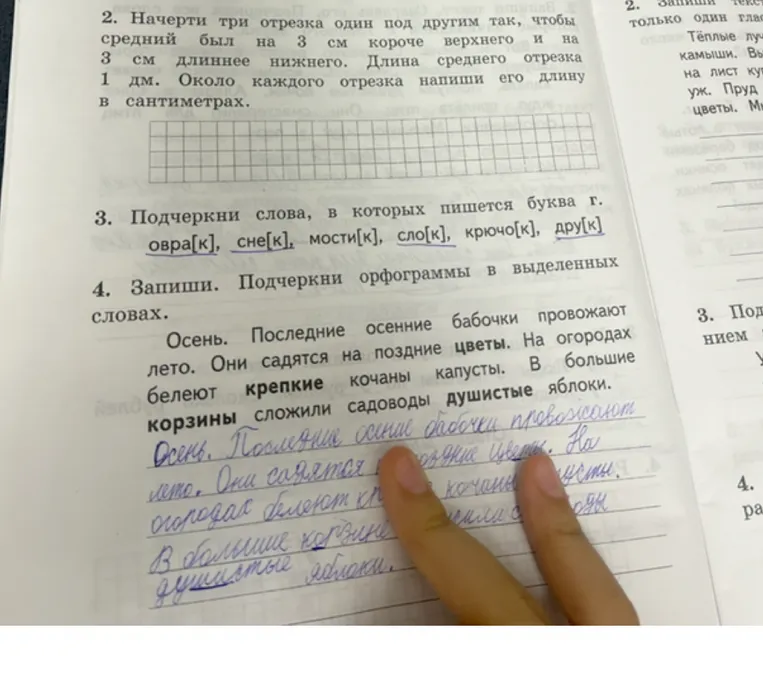 2. Начерти три отрезка один под другим так, чтобы
средний был на 3 см короче верхнего и на
3 см длиннее нижнего. Длина среднего отрезка
1 дм. Около каждого отрезка напиши его длину
в сантиметрах.
3. Подчеркни слова, в которых пишется буква г.
овра[к], сне[к], мости[к], сло[к], крючо[к], дру[к]
4. Запиши. Подчеркни орфограммы в выделенных
словах.
Осень. Последние осенние бабочки провожают
лето. Они садятся на поздние цветы. На огородах
белеют крепкие кочаны капусты. В большие
корзины сложили садоводы душистые яблоки.
Осень. Последние осение бабочки провожают
лето. Они садятся поздние цветы. На
огородах белеют
В большие
душистые яблоки.
2.
только один
Тёплые
камыши.
на лист
уж. Пруд
цветы.
3.
нием
4.